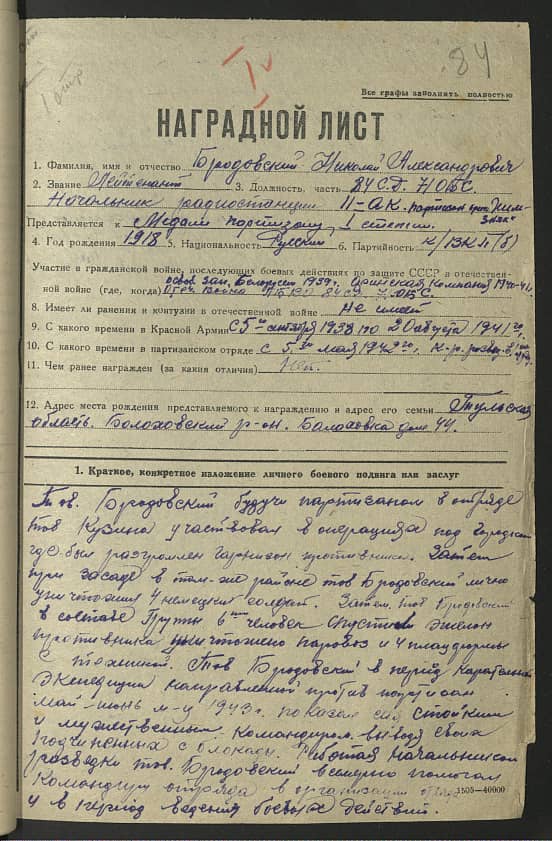 84
1 отр
Все графы заполнять полностью
НАГРАДНОЙ ЛИСТ
1. Фамилия, имя и отчество Бродовский Николай Александрович
2. Звание Лейтенант 3. Должность, часть 84 С.Д. 7 ОБС.
Начальник радиостанции II-АК. партизан
Представляется к Медали партизану, 1 степени.
4. Год рождения 1918 5. Национальность Русский 6. Партийность к/ВКП(б)
Участие в гражданской войне, последующих боевых действиях по защите СССР в отечествен-
ной войне (где, когда) освоб. зап. Белорусии 1939г. Финская Компания 1940-41г.
Отеч. война 84 СД 7 ОБС.
8. Имеет ли ранения и контузии в отечественной войне Не имеет
9. С какого времени в Красной Армии С 5го октября 1938 по 20 августа 1941 го.
10. С какого времени в партизанском отряде с 5го мая 1942 го. к-р. развед.
11. Чем ранее награжден (за какия отличия) Нет.
12. Адрес места рождения представляемого к награждению и адрес его семьи Тульская
область. Болоховский р-он. Болоховка дом 44.
1. Краткое, конкретное изложение личного боевого подвига или заслуг
Тов. Бродовский будучи партизаном в отряде
тов Кузина участвовал в операциях под
где был разгромлен гарнизон противника. Затем
при засаде в том-же районе тов Бродовский лично
уничтожил 4 немецких солдат. Затем тов Бродовский
в составе группы 6ти человек спустил эшелон
противника уничтожено паровоз и 4 платформы
с техникой. Тов Бродовский в период карательной
экспедиции направленной против партизан
май-июнь м-ц 1943г. показал себя стойким
и мужественным Командиром выводя своих
подчиненных с блокады. Работая начальником
разведки тов. Бродовский всемерно помогал
Командиру отряда в организации
и в период ведения боевых действий.
1505—40000